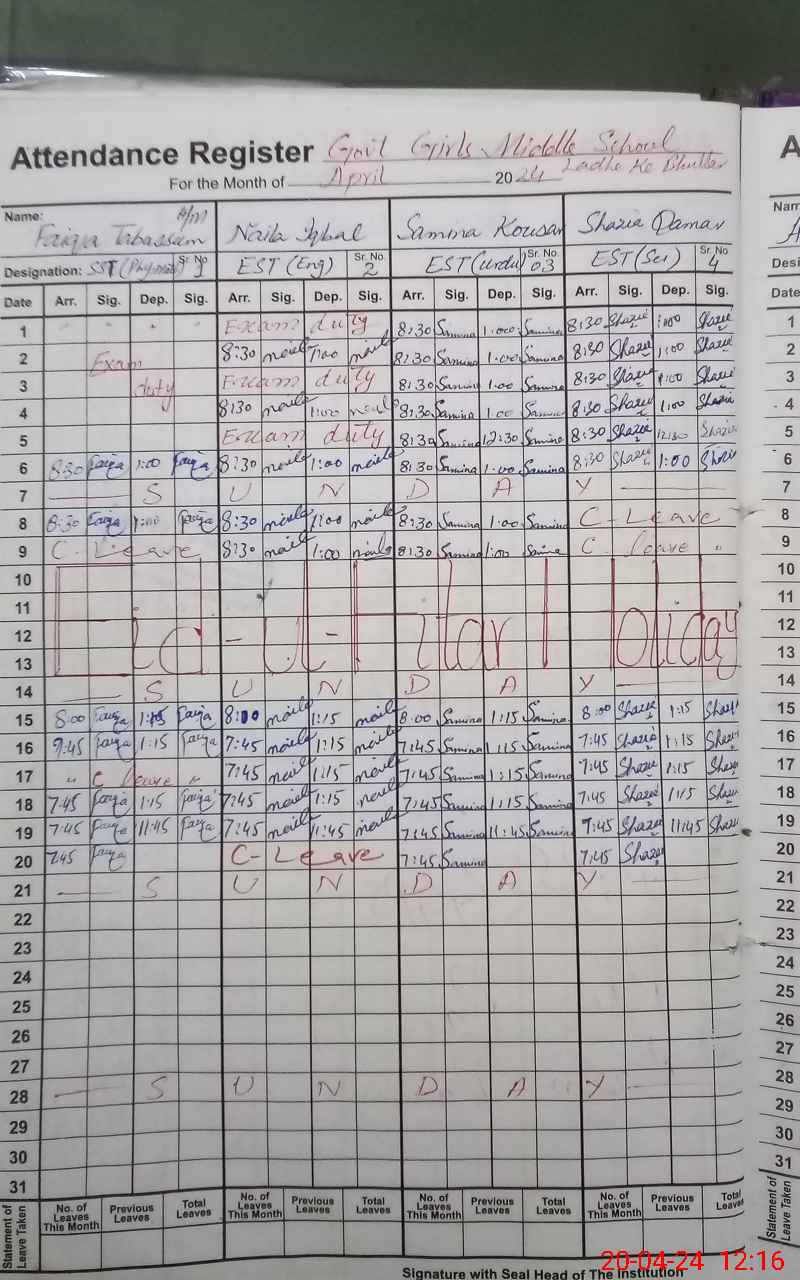 Attendance Register Govt Girls Middle School
For the Month of April 2024 Ladhe Ke Bhullar
A
Name: Faiqa Tabassam H/M Naila Iqbal Samina Kousar Shazia Qamar
Designation: SST (Phy-) Sr. No 1 EST (Eng) Sr. No. 2 EST (urdu) Sr. No. 03 EST (Sci) Sr. No. 4 Desi
Date Arr. Sig. Dep. Sig. Arr. Sig. Dep. Sig. Arr. Sig. Dep. Sig. Arr. Sig. Dep. Sig. Date
1 Exam duty 8:30 Samina 1:00 Samina 8:30 Shazia 1:00 Shazia 1
2 Exam 8:30 naila 1:00 naila 8:30 Samina 1:00 Samina 8:30 Shazia 1:00 Shazia 2
3 duty Exam duty 8:30 Samina 1:00 Samina 8:30 Shazia 1:00 Shazia 3
4 8:30 naila 1:00 naila 8:30 Samina 1:00 Samina 8:30 Shazia 1:00 Shazia 4
5 Exam duty 8:30 Samina 12:30 Samina 8:30 Shazia 12:30 Shazia 5
6 8:30 Faiqa 1:00 Faiqa 8:30 naila 1:00 naila 8:30 Samina 1:00 Samina 8:30 Shazia 1:00 Shazia 6
7 S U N D A Y 7
8 8:30 Faiqa 1:00 Faiqa 8:30 naila 1:00 naila 8:30 Samina 1:00 Samina C-Leave 8
9 C-Leave 8:30 naila 1:00 naila 8:30 Samina 1:00 Samina C-leave 9
10 10
11 11
12 Eid-ul-Fitar Holiday 12
13 13
14 S U N D A Y 14
15 8:00 Faiqa 1:15 Faiqa 8:00 naila 1:15 naila 8:00 Samina 1:15 Samina 8:00 Shazia 1:15 Shazia 15
16 7:45 Faiqa 1:15 Faiqa 7:45 naila 1:15 naila 7:45 Samina 1:15 Samina 7:45 Shazia 1:15 Shazia 16
17 " C leave " 7:45 naila 1:15 naila 7:45 Samina 1:15 Samina 7:45 Shazia 1:15 Shazia 17
18 7:45 Faiqa 1:15 Faiqa 7:45 naila 1:15 naila 7:45 Samina 1:15 Samina 7:45 Shazia 1:15 Shazia 18
19 7:45 Faiqa 11:45 Faiqa 7:45 naila 11:45 naila 7:45 Samina 11:45 Samina 7:45 Shazia 11:45 Shazia 19
20 7:45 Faiqa C-Leave 7:45 Samina 7:45 Shazia 20
21 S U N D A Y 21
22 22
23 23
24 24
25 25
26 26
27 27
28 S U N D A Y 28
29 29
30 30
31 31
Statement of Leave Taken No. of Leaves This Month Previous Leaves Total Leaves No. of Leaves This Month Previous Leaves Total Leaves No. of Leaves This Month Previous Leaves Total Leaves No. of Leaves This Month Previous Leaves Total Leaves Statement of Leave Taken
Signature with Seal Head of The Institution
20-04-24 12:16